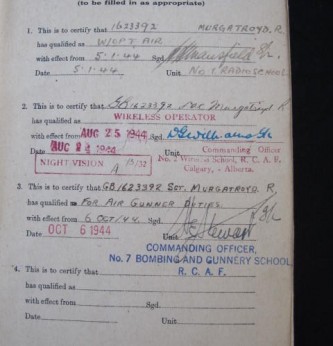 (to be filled in as appropriate)
1. This is to certify that 1623392 MURGATROYD. R.
has qualified as W/OPT AIR
with effect from 5.1.44. Sgd.
Date 5.1.44. Unit No. RADIO SCHOOL
2. This is to certify that GB1623392 Murgatroyd. R
has qualified as WIRELESS OPERATOR
with effect from AUG 25 1944 Sgd.
Date AUG 1944 Unit Commanding Officer
No. 2 Wireless School, R. C. A. F.
Calgary, - Alberta.
NIGHT VISION
A 15/32
3. This is to certify that GB 1623392 SGT. MURGATROYD. R,
has qualified as FOR AIR GUNNER DUTIES
with effect from 6 OCT/44 Sgd.
Date OCT 6 1944 Unit
COMMANDING OFFICER,
No. 7 BOMBING AND GUNNERY SCHOOL
R. C. A. F.
4. This is to certify that
has qualified as
with effect from Sgd.
Date Unit